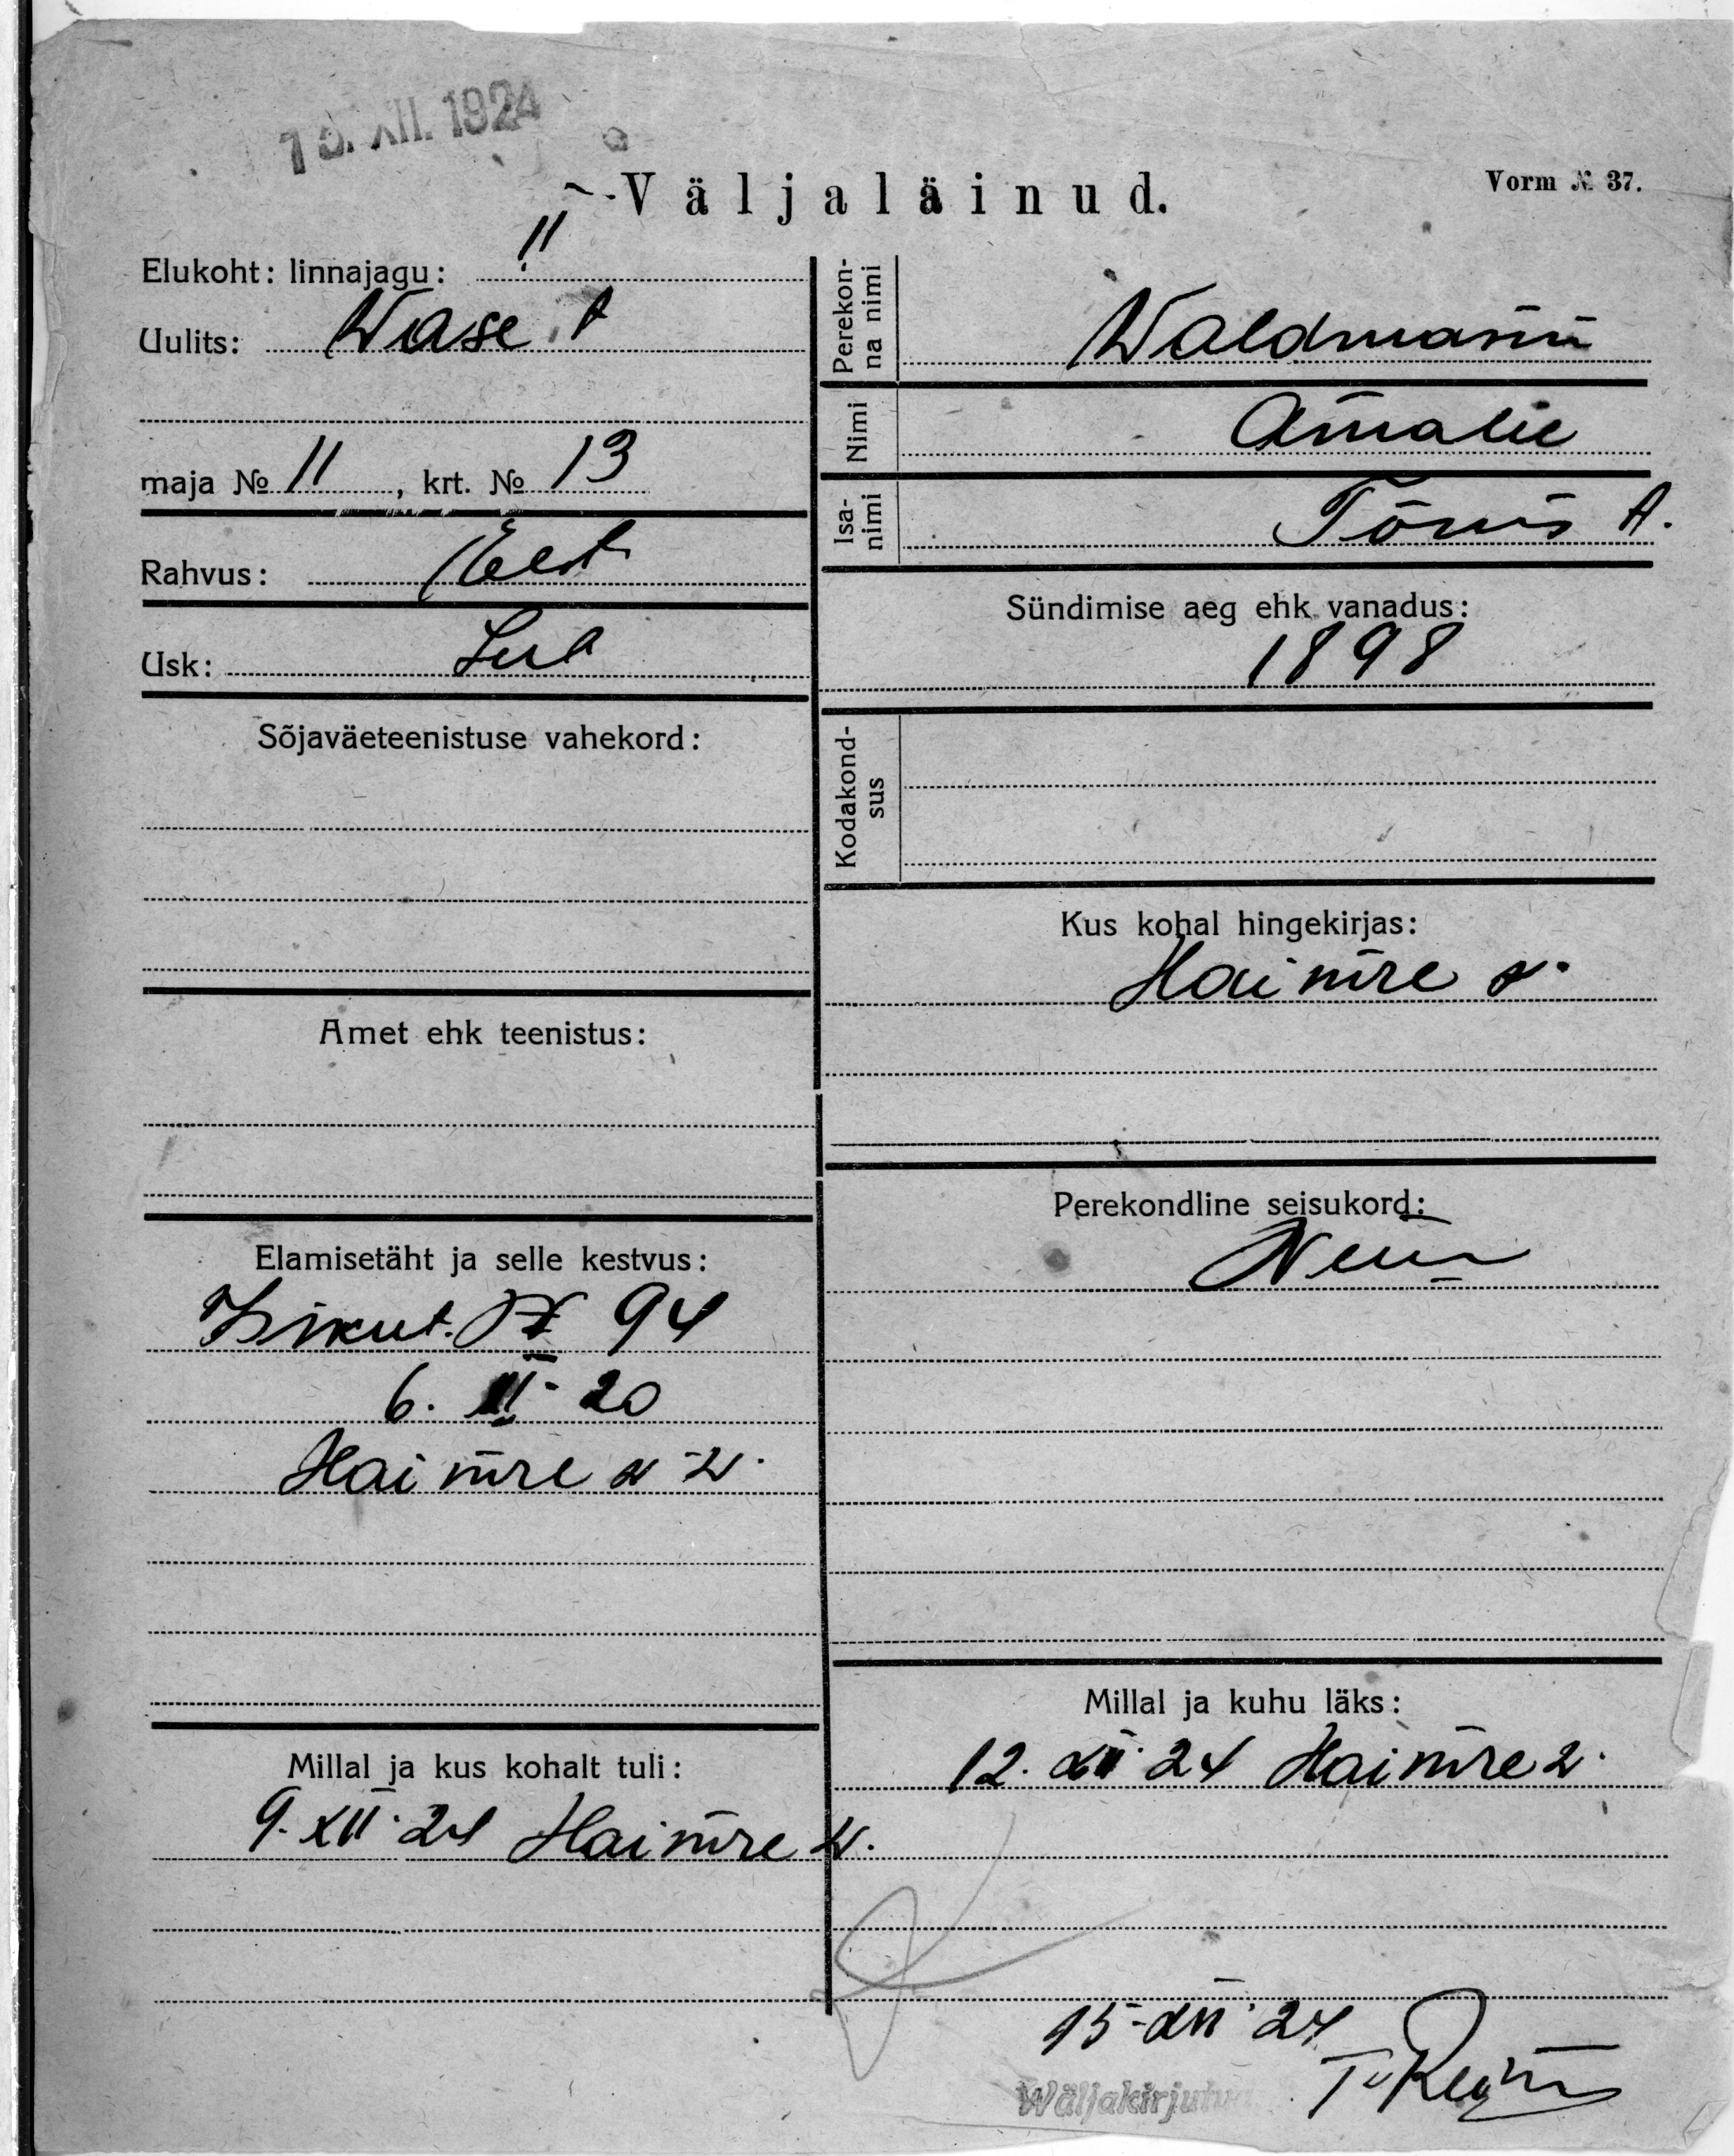 15. XII. 1924
Väljaläinud.
Vorm № 37.
Elukoht: linnajagu: II
Uulits: Wase t
maja № 11, krt. № 13
Rahvus: Eest
Usk: Lut
Sõjaväeteenistuse vahekord:
Amet ehk teenistus:
Elamisetäht ja selle kestvus:
Isikut. № 94
6. II 20
Haimre v-v.
Millal ja kus kohalt tuli:
9. XII 24 Haimre v.
Perekon-
na nimi
Waldmann
Nimi
Amalie
Isa-
nimi
Tõnis t.
Sündimise aeg ehk vanadus:
1898
Kodakond-
sus
Kus kohal hingekirjas:
Haimre v.
Perekondline seisukord:
Millal ja kuhu läks:
12. XII 24 Haimre v.
15-XII 24
Wäljakirjutu